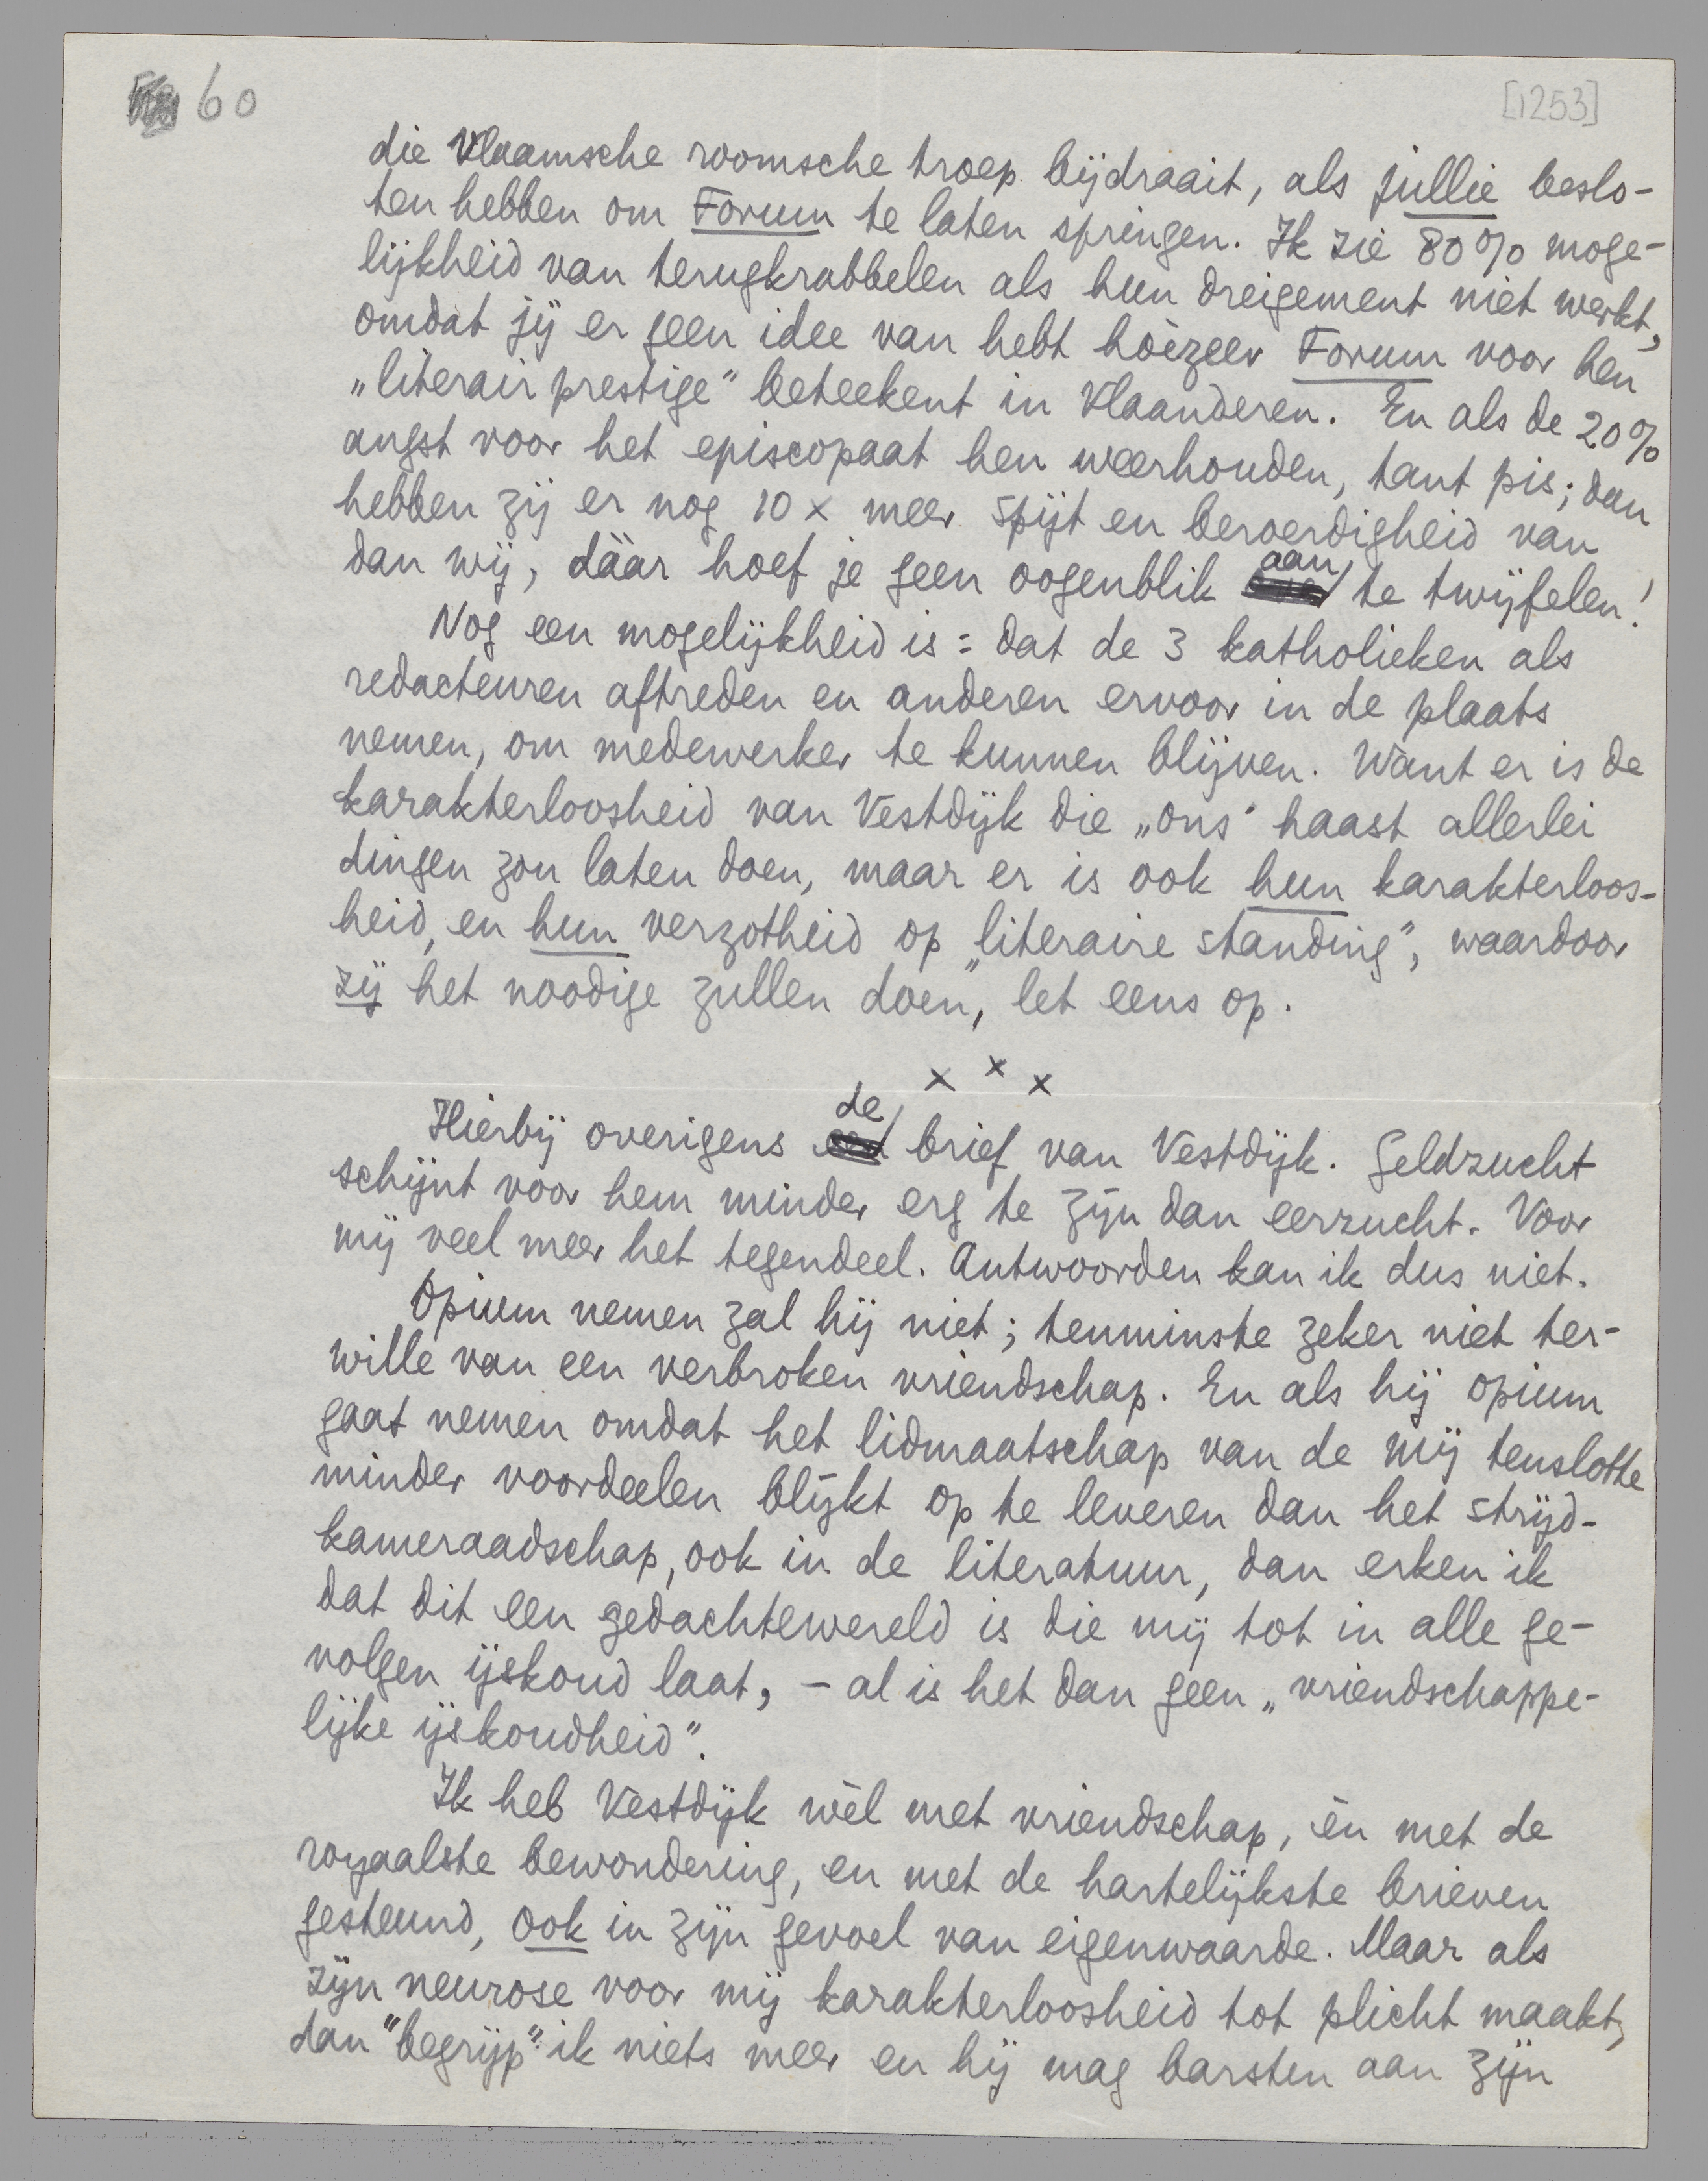 60
[1253]
die Vlaamsche roomsche troep bijdraait, als jullie beslo-
ten hebben om Forum te laten springen. Ik zie 80% moge-
lijkheid van terugkrabbelen als hun dreigement niet werkt,
omdat jij er geen idee van hebt hoèzeer Forum voor hen
„literair prestige" beteekent in Vlaanderen. En als de 20%
angst voor het episcopaat hen weerhouden, tant pis; dan
hebben zij er nog 10 x meer spijt en beroerdigheid van
dan wij, dáár hoef je geen oogenblik aan te twijfelen!
Nog een mogelijkheid is: dat de 3 katholieken als
redacteuren aftreden en anderen ervoor in de plaats
nemen, om medewerker te kunnen blijven. Want er is de
karakterloosheid van Vestdijk die „ons" haast allerlei
dingen zou laten doen, maar er is ook hun karakterloos-
heid, en hun verzotheid op „literaire standing", waardoor
zij het noodige zullen doen, let eens op.
x x x
Hierbij overigens de brief van Vestdijk. Geldzucht
schijnt voor hem minder erg te zijn dan eerzucht. Voor
mij veel meer het tegendeel. Antwoorden kan ik dus niet.
Opium nemen zal hij niet; tenminste zeker niet ter-
wille van een verbroken vriendschap. En als hij opium
gaat nemen omdat het lidmaatschap van de Mij tenslotte
minder voordeelen blijkt op te leveren dan het strijd-
kameraadschap, ook in de literatuur, dan erken ik
dat dit een gedachtewereld is die mij tot in alle ge-
volgen ijskoud laat, – al is het dan geen „vriendschappe-
lijke ijskoudheid".
Ik heb Vestdijk wèl met vriendschap, èn met de
royaalste bewondering, en met de hartelijkste brieven
gesteund, ook in zijn gevoel van eigenwaarde. Maar als
zijn neurose voor mij karakterloosheid tot plicht maakt,
dan "begrijp" ik niets meer en hij mag barsten aan zijn